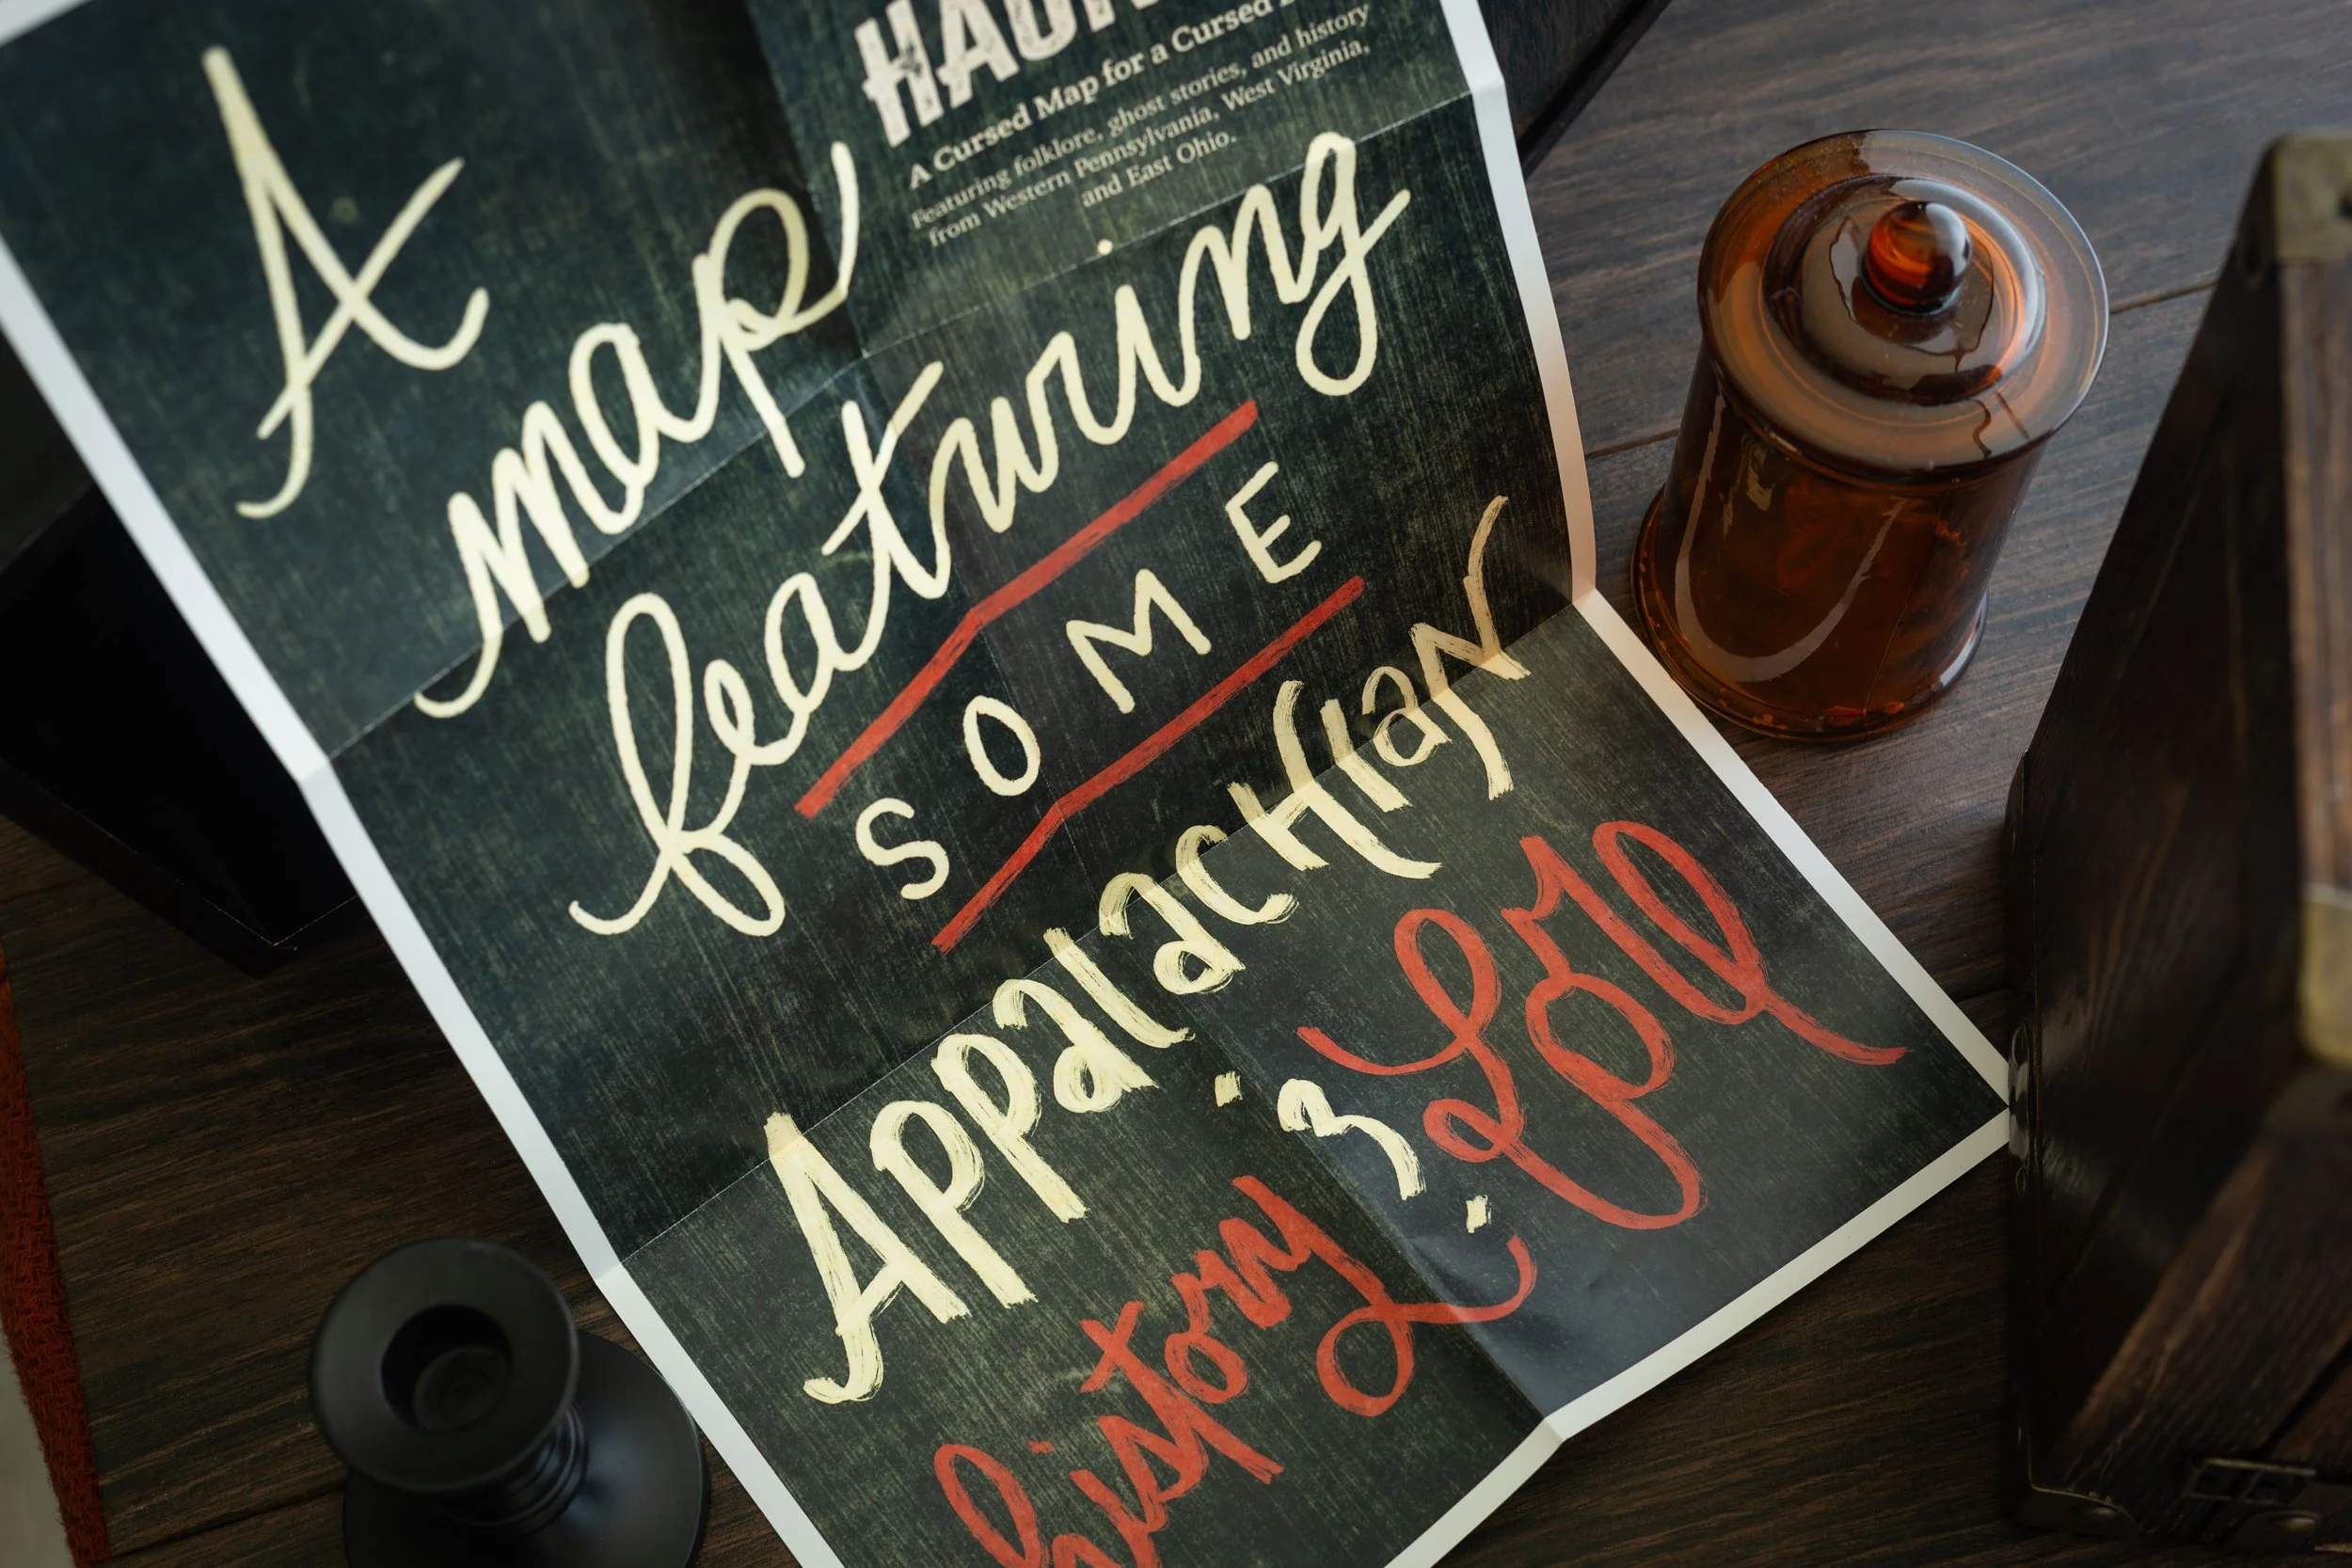 A Cursed Map for a Cursed
Featuring folklore, ghost stories, and history
from Western Pennsylvania, West Virginia,
and East Ohio.
A
map
featuring
SOME
AppalacHiaN
history & Lore